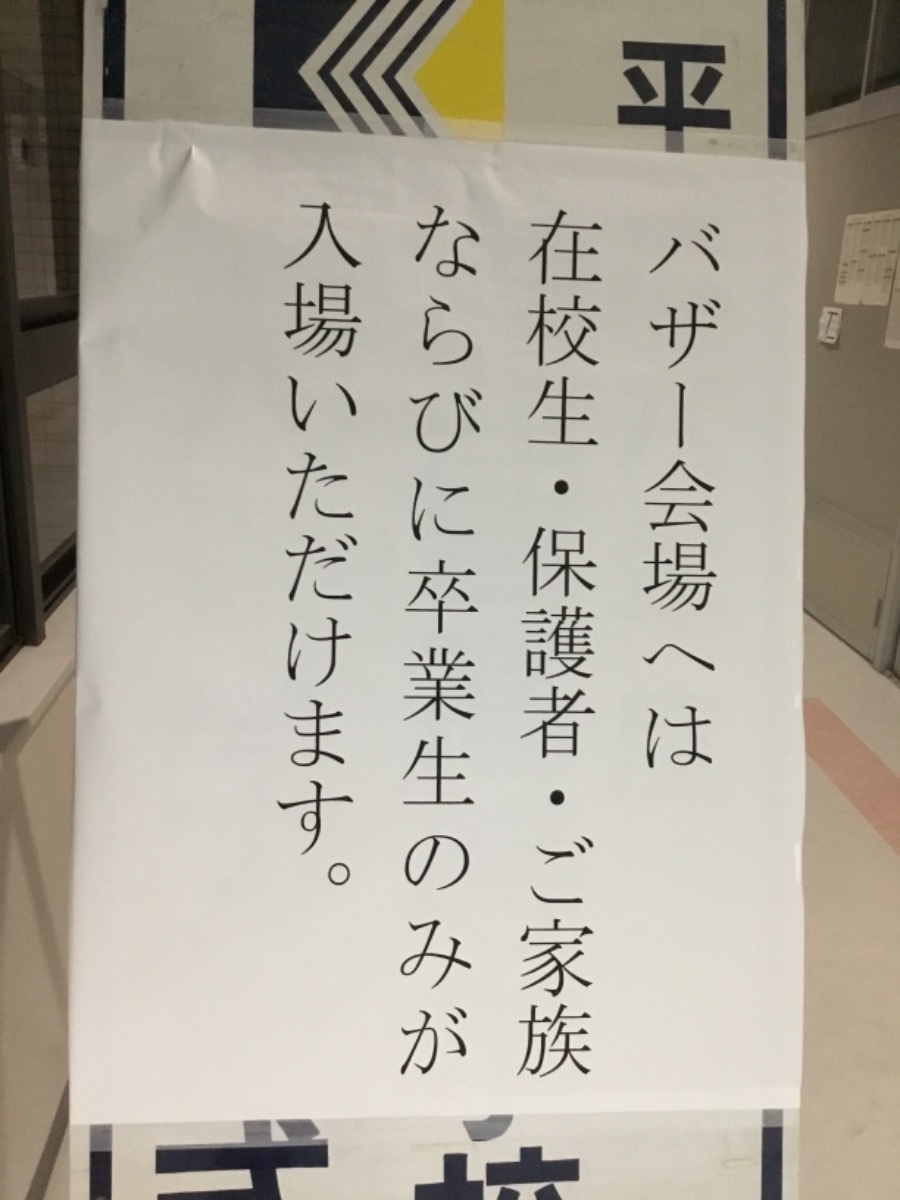 平
バザー会場へは
在校生・保護者・ご家族
ならびに卒業生のみが
入場いただけます。